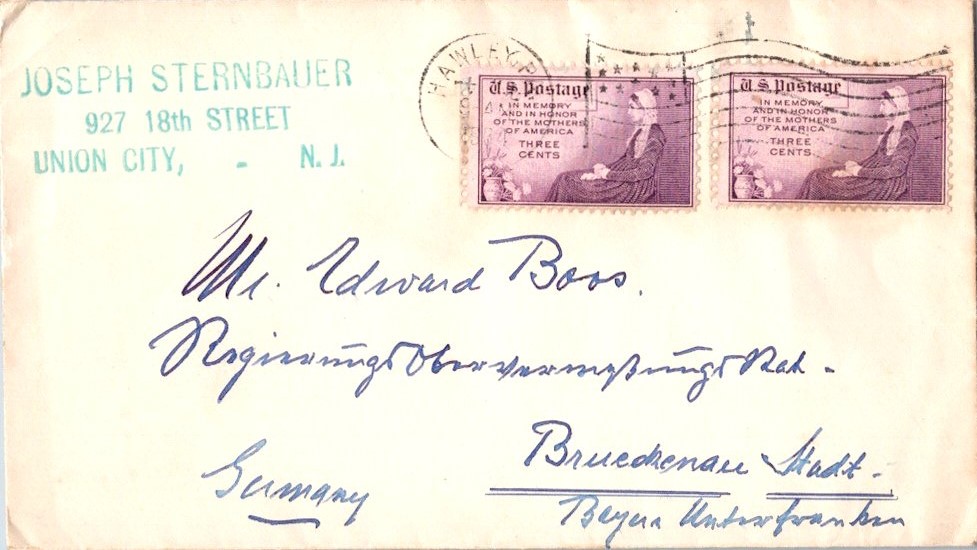 JOSEPH STERNBAUER
927 18th STREET
UNION CITY, - N. J.
HAWLEY, P
U.S. Postage
IN MEMORY
AND IN HONOR
OF THE MOTHERS
OF AMERICA
THREE
CENTS
U.S. Postage
IN MEMORY
AND IN HONOR
OF THE MOTHERS
OF AMERICA
THREE
CENTS
Mr. Edward Boos.
Regierungs Obervermeßungs Rat -
Brueckenau - Stadt -
Germany
Bayern Unterfranken